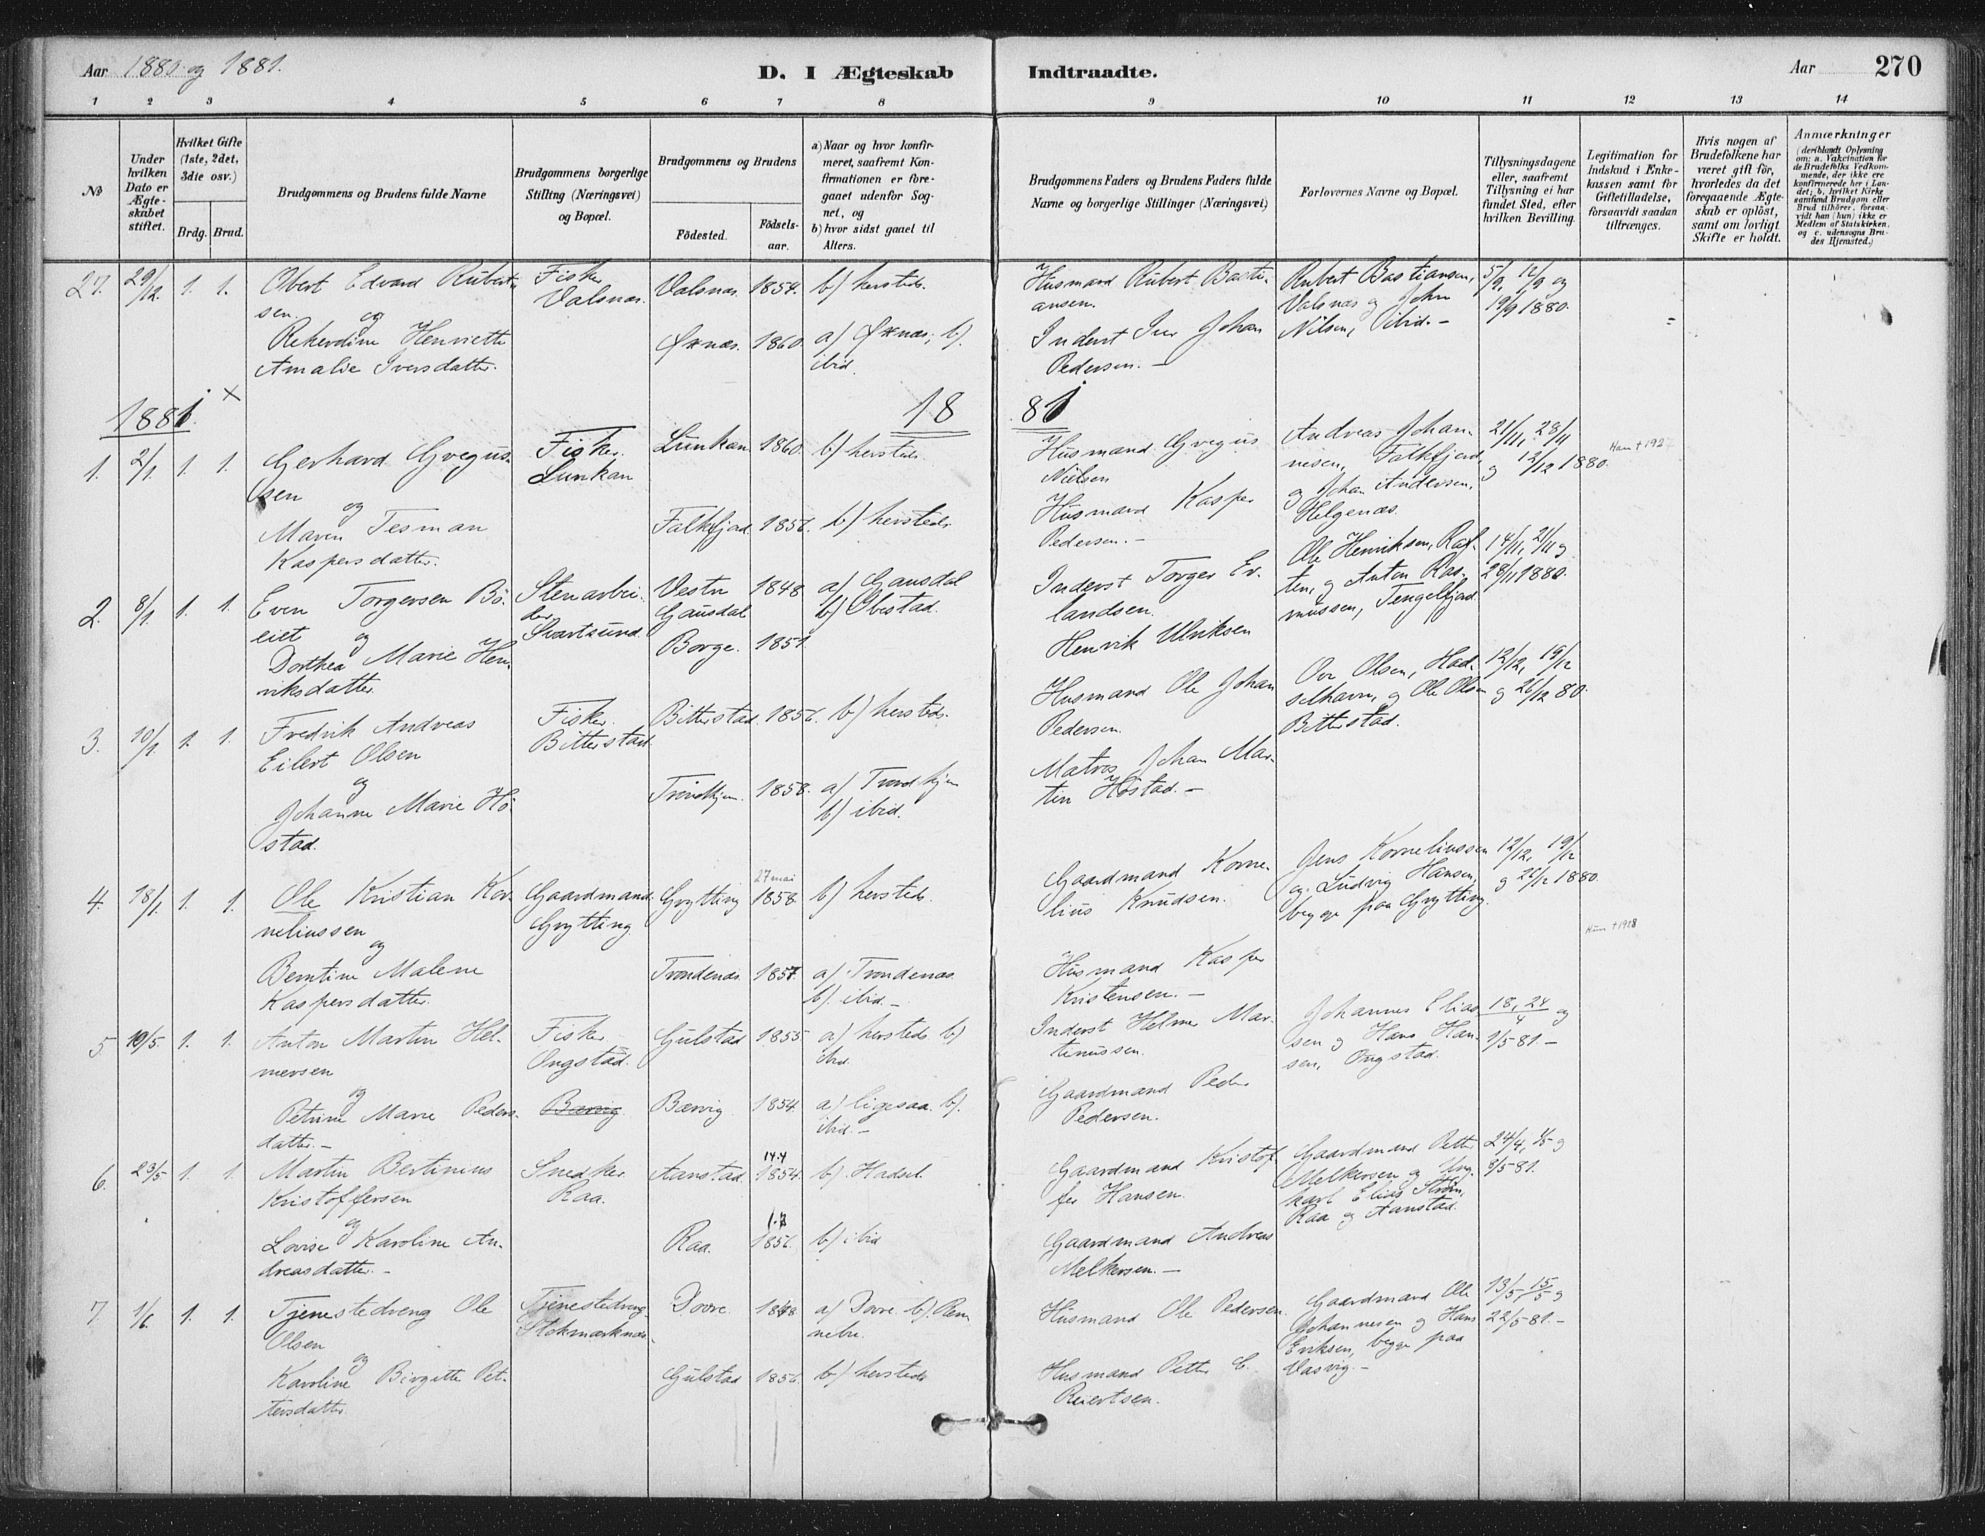 Aar 1880 og 1881.
D. I Ægteskab
Indtraadte.
Aar
270
1 2 3 4 5 6 7 8 9 10 11 12 13 14
No
Under hvilken Dato er Ægteskabet stiftet.
Hvilket Gifte (1ste, 2det, 3die osv.)
Brdg. Brud.
Brudgommens og Brudens fulde Navne
Brudgommens borgerlige Stilling (Næringsvei) og Bopæl.
Brudgommens og Brudens
Födested.
Födsels-aar.
a) Naar og hvor konfirmeret, saafremt Konfirmationen er foregaaet udenfor Sognet, og
b) hvor sidst gaaet til Alters.
Brudgommens Faders og Brudens Faders fulde Navne og borgerlige Stillinger (Næringsvei)
Forlovernes Navne og Bopæl.
Tillysningsdagene eller, saafremt Tillysning ei har fundet Sted, efter hvilken Bevilling.
Legitimation for Indskud i Enkekassen samt for Giftetilladelse, forsaavidt saadan tiltrænges.
Hvis nogen af Brudefolkene har været gift för, hvorledes da det foregaaende Ægteskab er oplöst, samt om lovligt Skifte er holdt.
Anmærkninger
(deriblandt Oplysning om: a. Vakcination for de Brudefolks Vedkommende, der ikke ere konfirmerede her i Landet; b. hvilket Kirkesamfund Brudgom eller Brud tilhörer, forsaavidt han (hun) ikke er Medlem af Statskirken, og c. udensogns Brudes Hjemsted.)
27. 29/12 1. 1. Obert Edvard Rubert-
sen
og
Rikardine Henriette
Amalie Iversdatter.
Fisker
Valsnæs.
Valsnæs. 1854. b) hersteds.
Øxnæs. 1860. a) Øxnæs; b)
ibid.
Husmand Rubert Basti-
ansen.
Inderst Iver Johan
Pedersen. —
Rubert Bastiansen,
Valsnæs og John
Nilsen, ibid. —
5/9, 12/9 og
19/9 1880.
1881. 1881
1. 2/1 1. 1. Gerhard Gregus-
sen
og
Maren Tesman
Kaspersdatter.
Fisker
Lunkan
Lunkan 1860. b) hersteds.
Falkfjord 1856. b) hersteds.
Husmand Gregus
Nielsen
Husmand Kasper
Pedersen. —
Andreas Johan-
nesen, Falkfjord,
og Johan Andersen,
Helgenæs.
21/11, 28/11
og 12/12 1880.
Ham + 1927
2. 8/1 1. 1. Even Torgersen Bö-
eiet
og
Dorthea Marie Hen-
riksdatter.
Stenarbei-
der
Svartsund.
Vestre
Gausdal
1848
Borge. 1851.
a) Gausdal
b) Obestad.
Inderst Torger Ev-
landsen.
Henrik Ulriksen
Ole Henriksen, Raf-
ten, og Anton Ras-
mussen, Tengelfjord.
14/11, 21/11 og
28/11 1880.
3. 10/1 1. 1. Fredrik Andreas
Eilert Olsen
og
Johanne Marie Hö-
stad.
Fisker
Bitterstad
Bitterstad 1856. b) hersteds.
Trondhjem. 1858. a) Trondhjem
b) ibid.
Husmand Ole Johan
Pedersen.
Matros Johan Mar-
tin Höstad. —
Ove Olsen, Had-
selhavn, og Ole Olsen
Bitterstad.
12/12, 19/12
og 26/12 80.
4. 18/1 1. 1. Ole Kristian Kor-
neliussen
og
Berntine Malene
Kaspersdatter.
Gaardmand
Grytting
Grytting 27 mai 1858. b) hersteds.
Trondenæs. 1857. a) Trondenæs
b) ibid. —
Gaardmand Korne-
lius Knudsen.
Husmand Kasper
Kristensen. —
Jens Korneliussen
og Ludvig Hansen,
begge paa Grytting.
12/12, 19/12
og 26/12 1880.
Ham + 1928
5 10/5 1. 1. Anton Martin Hel-
mersen
og
Petrine Marie Peders-
datter. —
Fisker
Ongstad.
Bærvig
Gulstad 1855 a) hersteds b)
ibid.
Bærvig 1854. a) ligesaa b)
ibid. —
Inderst Helmer Mar-
tinussen.
Gaardmand Peder
Pedersen.
Johannes Elias-
sen og Hans Han-
sen, Ongstad.
18, 24/4 og
1/5 81 —
6. 23/5 1. 1. Martin Bertinius
Kristoffersen
og
Lovise Karoline An-
dreasdatter. —
Snedker
Raa.
Aanstad 14.4 1854. b) Hadsel.
Raa. 1.7 1856. b) ibid
Gaardmand Kristof-
fer Hansen.
Gaardmand Andreas
Melkersen. —
Gaardmand Petter
Melkersen og Ung-
karl Elias Ström,
Raa og Aanstad.
24/4, 1/5 og
8/5 81.
7. 1/6 1. 1. Tjenestedreng Ole
Olsen
og
Karoline Birgitte Pet-
tersdatter.
Tjenestedreng
Stokmarknæs.
Dovre. 1848 a) Dovre. b) Ren-
nebu.
Gulstad 1856. b) hersteds
Husmand Ole Pedersen.
Husmand Petter C.
Reiertsen.
Gaardmand Ole
Johannesen og Hans
Eriksen, begge paa
Vasvig. —
13/5, 15/5 og
22/5 81. —